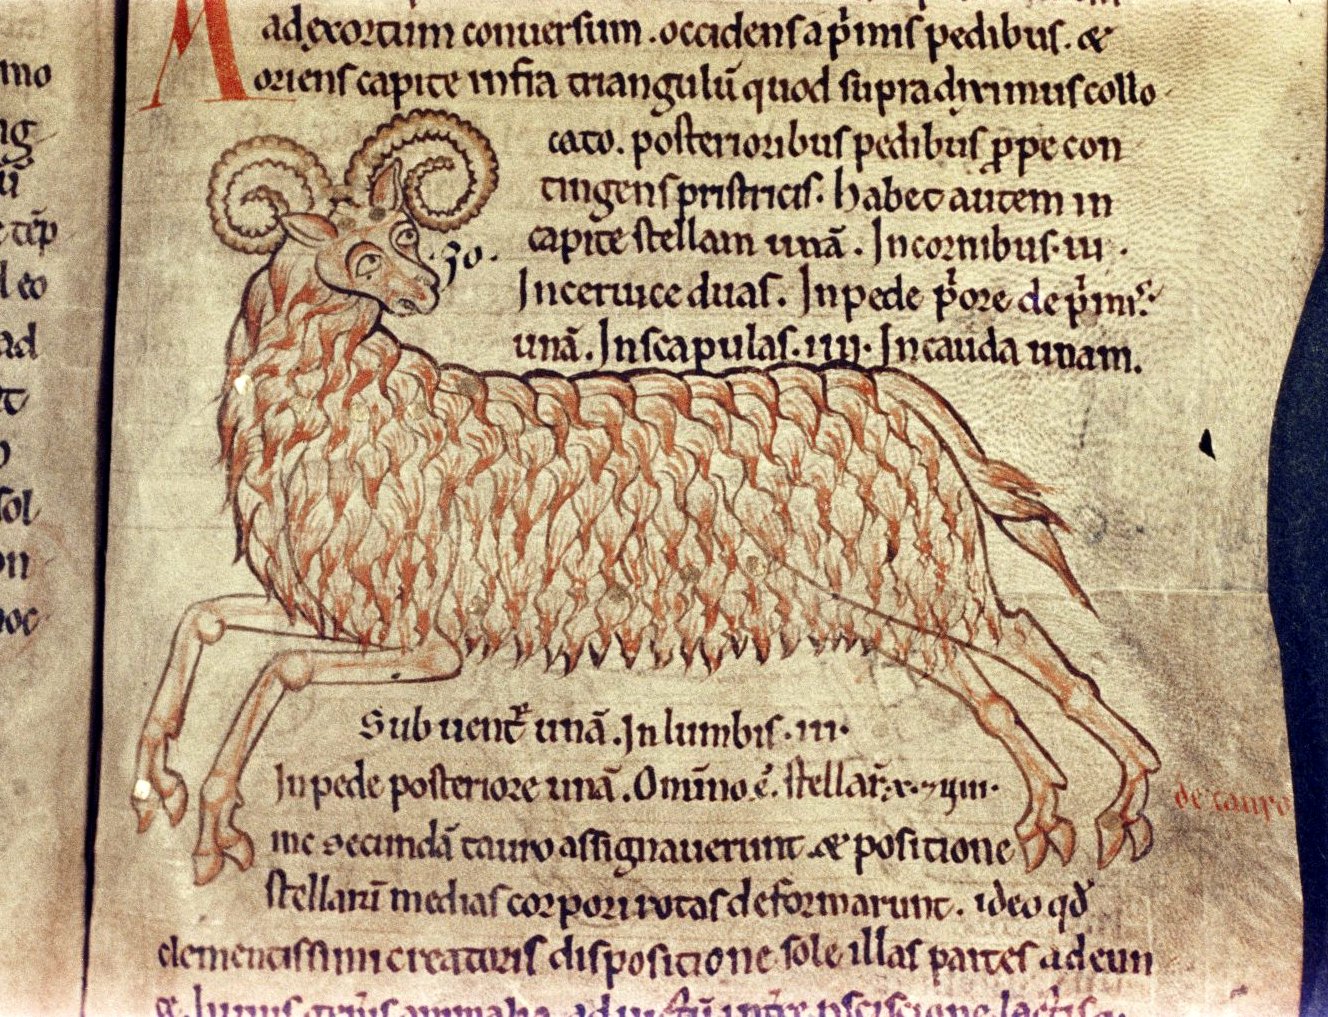 mo
ng
A
ad exortum conuersum. occidens a p̄mis pedibus. &
oriens capite infra triangulū quod supra diximus collo
cato. posterioribus pedibus ꝓpe con
tingens pristricis. habet autem in
capite stellam unā. In cornibus .iii.
In ceruice duas. In pede p̄ore de p̄mis
unā. In scapulas .iiii. In cauda unam.
Sub uentre unā. In lumbis .iii.
In pede posteriore unā. Omīno ē. stellaꝝ
de tauro
inc secundā tauro assignauerunt. & positione
stellarū medias corpori rotas deformarunt. ideo qđ
clementissimi creatoris dispositione sole illas partes adeun